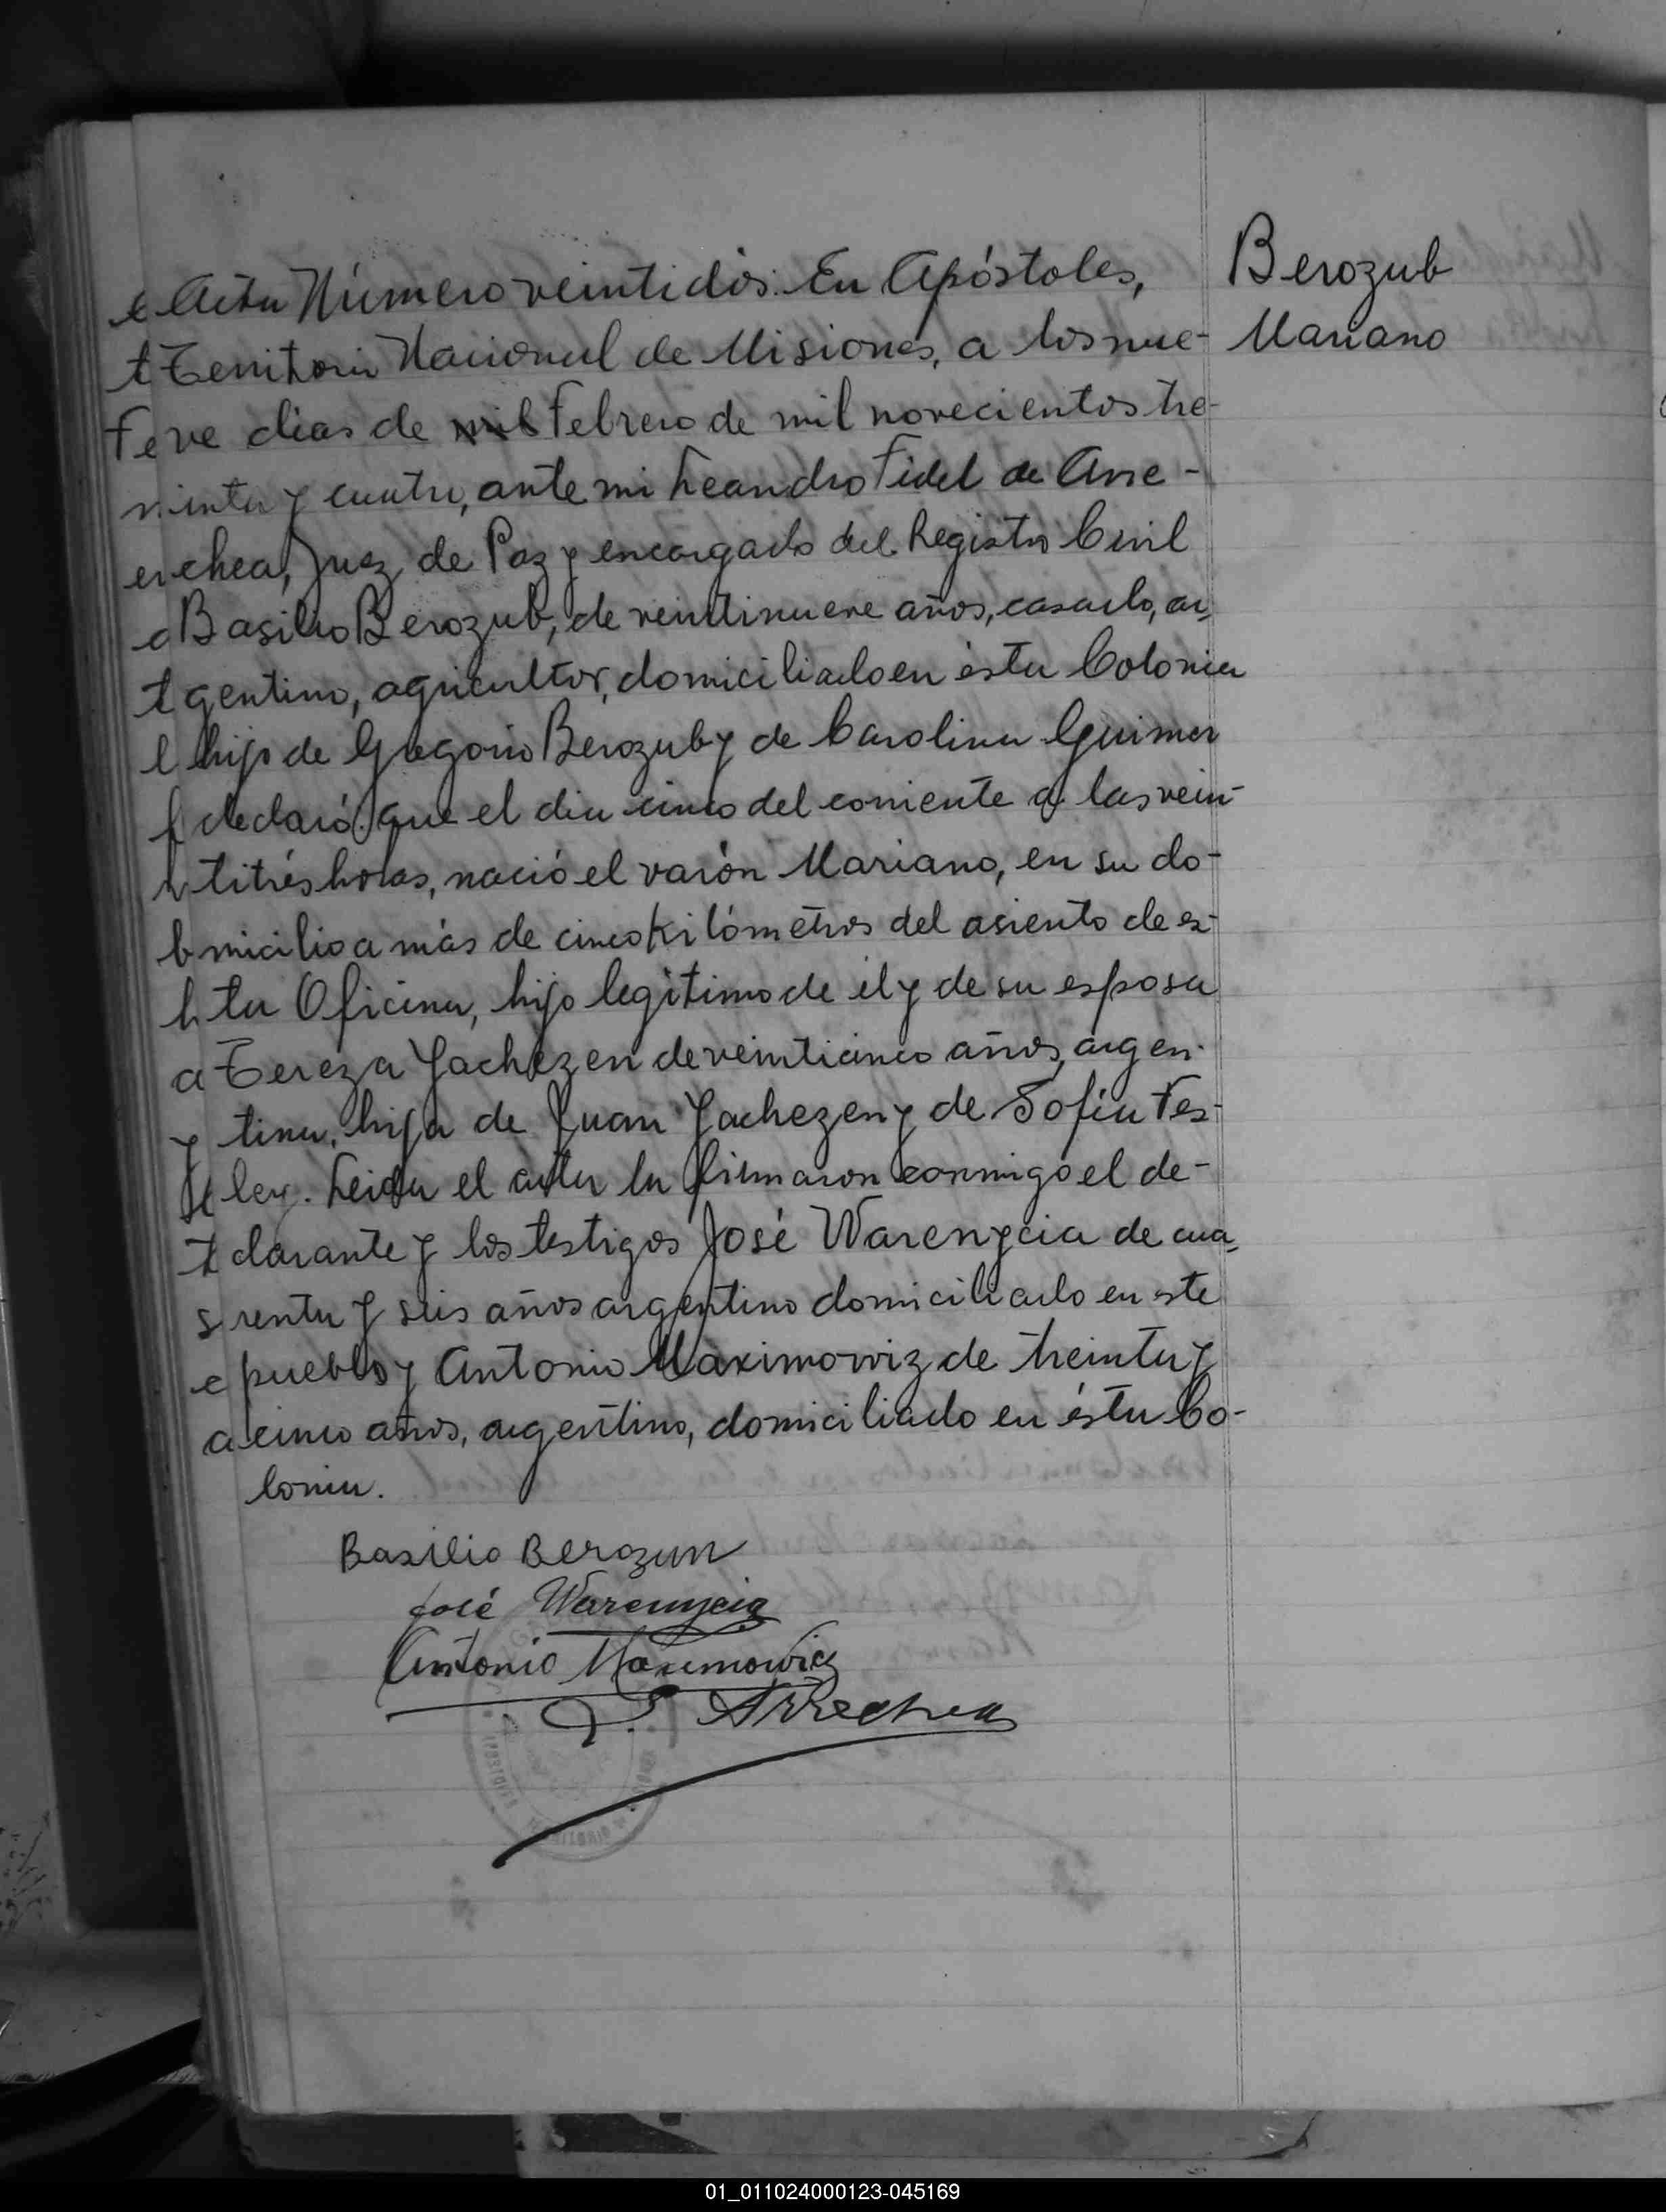 Acta Número veintidós. En Apóstoles,
Territorio Nacional de Misiones, a los nue-
ve dias de mil Febrero de mil novecientos tre-
inta y cuatro, ante mi Leandro Fidel de Arre-
chea, Juez de Paz y encargado del Registro Civil
Basilio Berozub, de veintinueve años, casado, ar-
gentino, agricultor, domiciliado en ésta Colonia
hijo de Gregorio Berozub y de Carolina Guimer
declaró: que el dia cinco del corriente a las vein-
titrés horas, nació el varón Mariano, en su do-
micilio a más de cinco kilómetros del asiento de es-
ta Oficina, hijo legítimo de él y de su esposa
Tereza Yachezen de veinticinco años, argen-
tina, hija de Juan Yachezen y de Sofía Fes-
ler. Leida el acta la firmaron conmigo el de-
clarante y los testigos José Warenycia de cua-
renta y seis años argentino domiciliado en este
pueblo y Antonio Maximowiz de treinta y
cinco años, argentino, domiciliado en ésta Co-
lonia.
Basilio Berozun
José Warenycia
Antonio Maximowicz
L. F. Arrechea
Berozub
Mariano
01_011024000123-045169